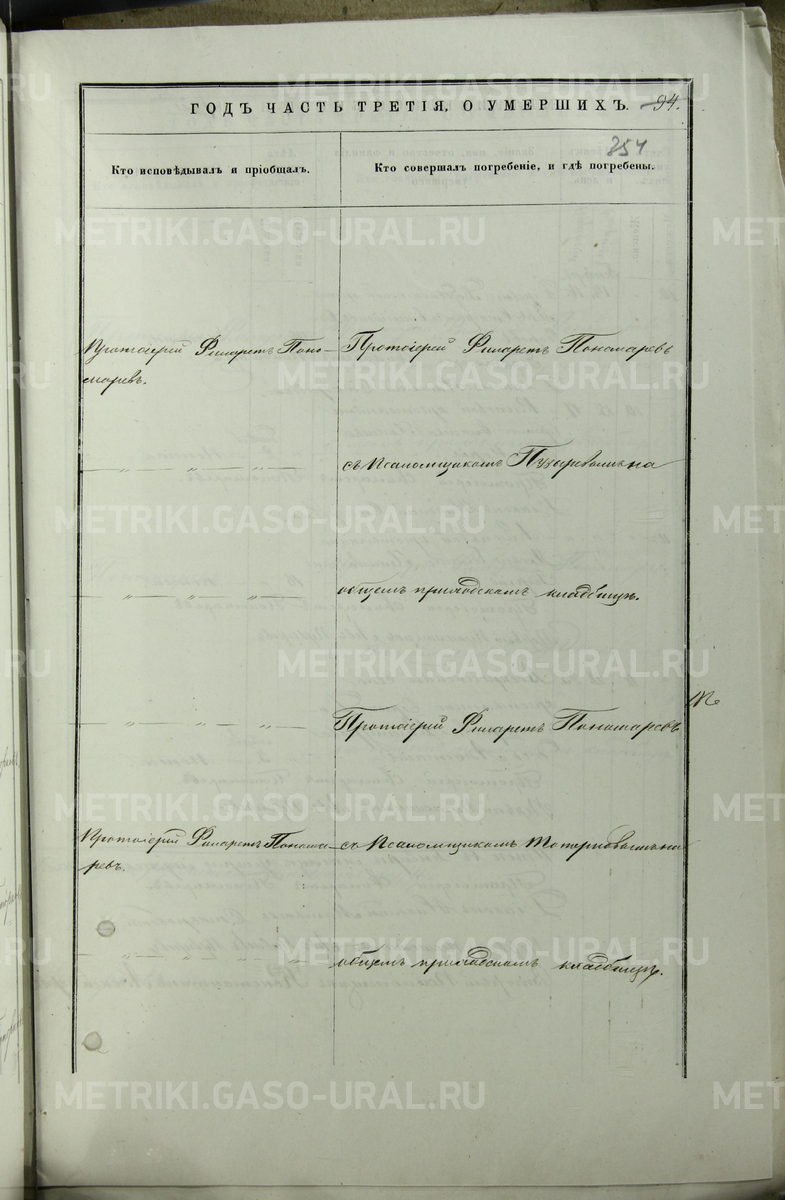 ГОДЪ ЧАСТЬ ТРЕТІЯ, О УМЕРШИХЪ. 94.
254
Кто исповѣдывалъ и пріобщалъ.
Кто совершалъ погребеніе, и гдѣ погребены.
Протоіерей Филаретъ Поно-
маревъ.
Протоіерей Филаретъ Пономаревъ
съ Псаломщикомъ на
общемъ приходскомъ кладбищѣ.
Протоіерей Филаретъ Пономаревъ
Протоіерей Филаретъ Понома-
ревъ.
съ Псаломщикомъ на
общемъ приходскомъ кладбищѣ.
METRIKI.GASO-URAL.RU